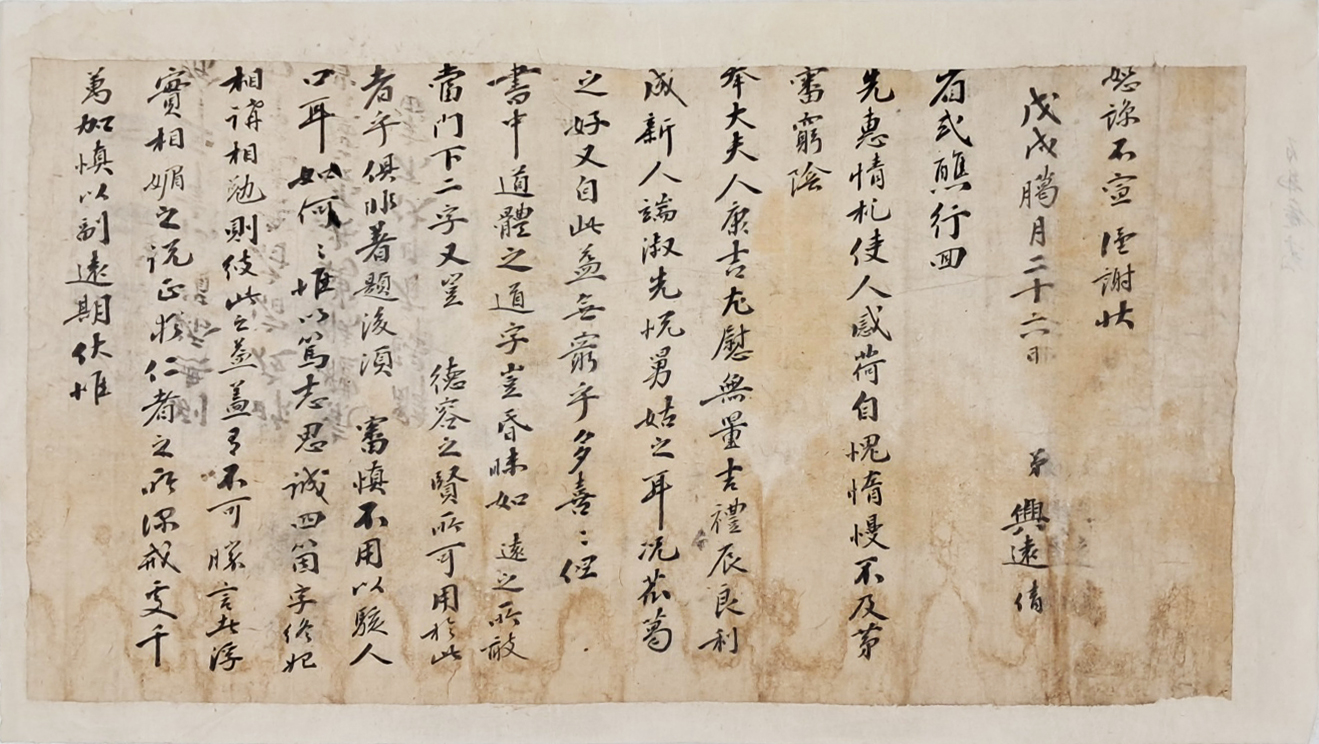 恕諒不宣 謹謝狀
戊戌臘月二十六日 弟 興遠 倩
省式醮行回
先惠情札使人感荷自愧惰慢不及第
審窮陰
奉大夫人康吉尤慰無量吉禮辰良利
成新人端淑先悅舅姑之耳况葛
之好又自此益無窮乎多喜〻但
書中道體之道字豈昏昧如 遠之所敢
當門下二字又豈 德容之賢所可用於此
者乎俱非着題後須 審慎不用以駭人
口耳如何〻惟以篤志思誠四箇字終始
相講相勉則彼此之益蓋有不可勝言者浮
實相媚之說正仁者之所深戒更千
萬加慎以副遠期伏惟